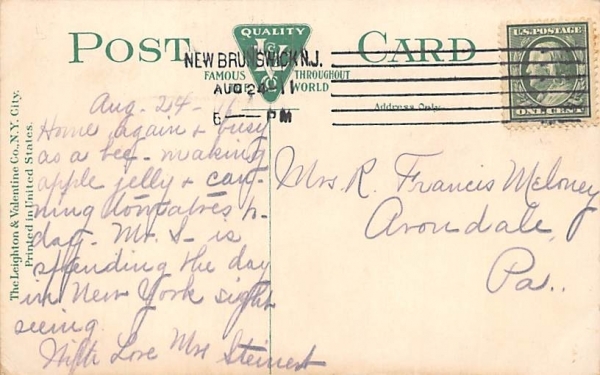 POST CARD
QUALITY
L V Co
FAMOUS THROUGHOUT
WORLD
NEW BRUNSWICK N.J.
AUG 24 11
6 — PM
U.S. POSTAGE
ONE CENT
Address Only
The Leighton & Valentine Co., N.Y. City.
Printed in United States.
Aug. 24-
Home again & busy
as a bee - making
apple jelly & can-
ning tomatoes to-
day. Mr. S- is
spending the day
in New York sight
seeing
With Love Mrs Steinert
Mrs. R. Francis Meloney
Avondale,
Pa..